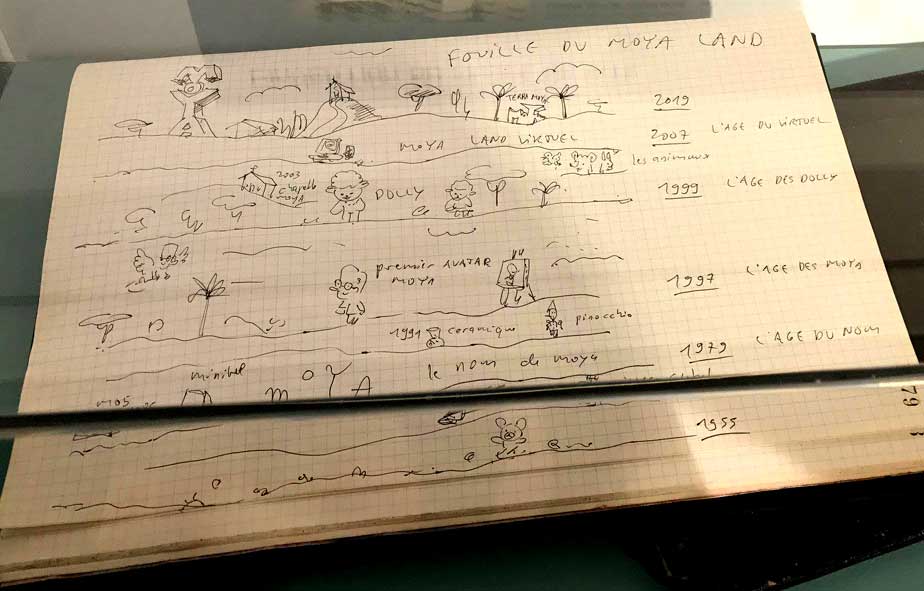 FOUILLE DU MOYA LAND
TERRA MOYA
2019
MOYA LAND VIRTUEL
2007 L'AGE DU VIRTUEL
les animaux
2003
Chapelle
MOYA
DOLLY
1999 L'AGE DES DOLLY
premier AVATAR
MOYA
1997 L'AGE DES MOYA
1991 ceramique
pinocchio
1979 L'AGE DU NOM
le nom de moya
MOYA
M05
1955
67